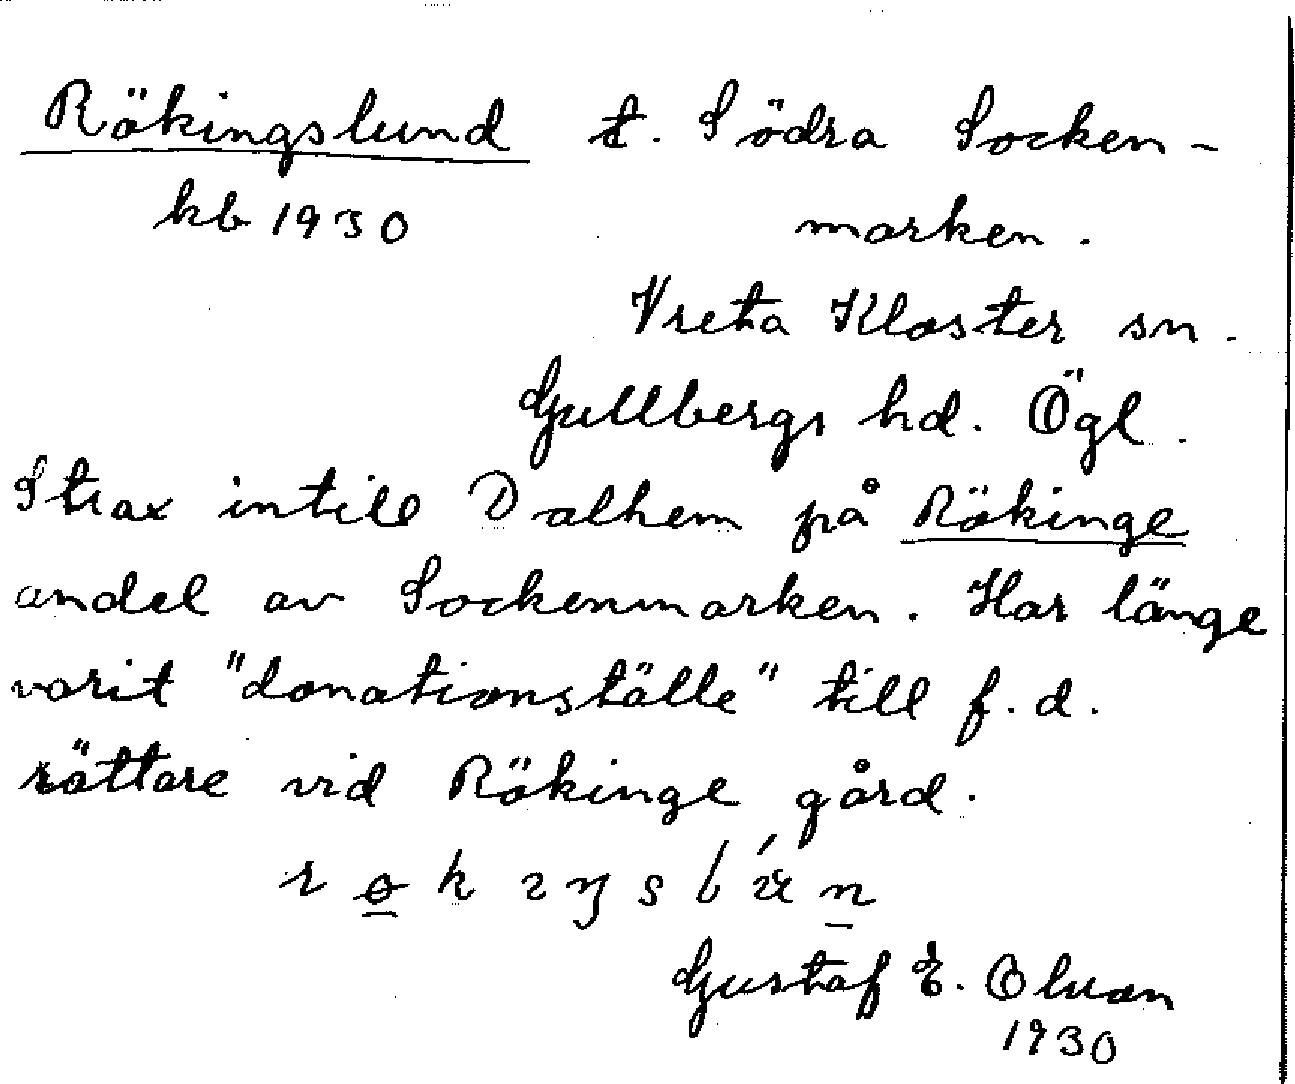 Rökingslund t. Södra Socken-
kb 1930 marken.
Vreta Kloster sn.
Gullbergs hd. Ögl.
Strax intill Dalhem på Rökinge
andel av Sockenmarken. Har länge
varit "donationställe" till f.d.
rättare vid Rökinge gård.
Gustaf E. Olson
1930